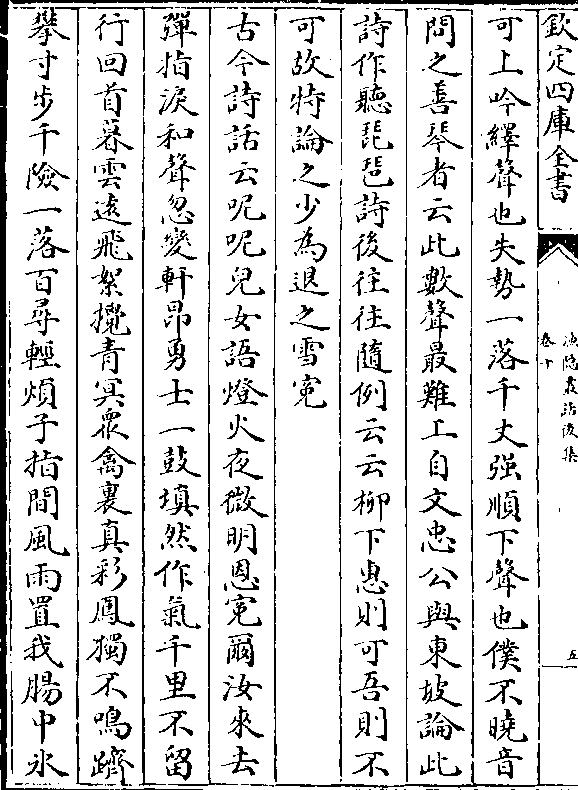 欽定四庫全書
漁隱叢話後集
卷十
五
可上吟繹聲也失勢一落千丈强順下聲也僕不曉音
問之善琴者云此數聲最難工自文忠公與東坡論此
詩作聽琵琶詩後往往隨例云云柳下惠則可吾則不
可故特論之少為退之雪寃
古今詩話云呢呢兒女語燈火夜微明恩寃爾汝來去
彈指淚和聲忽變軒昂勇士一鼓填然作氣千里不留
行回首暮雲遠飛絮攪青冥衆禽裏真彩鳳獨不鳴躋
攀寸步千險一落百尋輕煩子指間風雨置我腸中氷